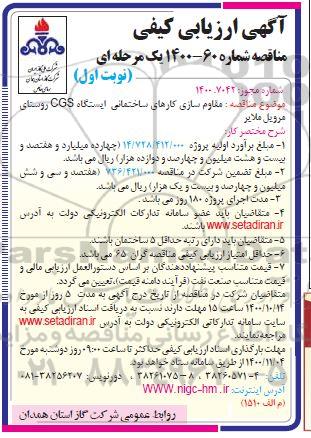 آگهی ارزیابی کیفی
مناقصه شماره ۶۰-۱۴۰۰ یک مرحله ای
(نوبت اول)
شرکت ملی گاز ایران
شرکت گاز استان همدان
سهامی خاص
شماره مجوز: ۱۴۰۰.۷۰۴۲
موضوع مناقصه : مقاوم سازی کارهای ساختمانی ایستگاه CGS روستای
مرویل ملایر
شرح مختصر کار:
۱- مبلغ برآورد اولیه پروژه ۱۴/۷۲۸/۴۱۲/۰۰۰ (چهارده میلیارد و هفتصد و
بیست و هشت میلیون و چهارصد و دوازده هزار) ریال می باشد.
۲- مبلغ تضمین شرکت در مناقصه ۷۳۶/۴۲۱/۰۰۰ (هفتصد و سی و شش
میلیون و چهارصد و بیست و یک هزار) ریال می باشد.
۳- مدت اجرای پروژه ۱۸۰ روز می باشد.
۴- متقاضیان باید عضو سامانه تدارکات الکترونیکی دولت به آدرس
www.setadiran.ir باشند.
۵- متقاضیان باید دارای رتبه حداقل ۵ ساختمان باشند.
۶- حداقل امتیاز ارزیابی کیفی مناقصه گران ۶۵ می باشد.
۷- قیمت متناسب پیشنهاددهندگان بر اساس دستورالعمل ارزیابی مالی و
قیمت متناسب صنعت نفت (فرآیند دامنه قیمت)، تعیین می گردد.
متقاضیان شرکت در مناقصه از تاریخ درج آگهی به مدت ۵ روز از مورخ
۱۴۰۰/۱۰/۱۴ ساعت ۱۵ مهلت دارند نسبت به دریافت اسناد ارزیابی کیفی به
سایت سامانه تدارکاتی الکترونیکی دولت به آدرس www.setadiran.ir
مراجعه نمایند.
مهلت بارگذاری اسناد ارزیابی کیفی حداکثر تا ساعت ۰۹:۰۰ روز دوشنبه مورخ
۱۴۰۰/۱۱/۰۴ از طریق سامانه ستاد خواهد بود.
تلفن: ۴-۳۸۲۶۰۵۷۱ ، ۸-۳۸۲۶۱۰۷۵ ، دورنویس: ۳۸۲۵۶۲۰۷-۰۸۱
آدرس اینترنت: www.nigc-hm.ir
(م الف ۱۵۱۰)
روابط عمومی شرکت گاز استان همدان